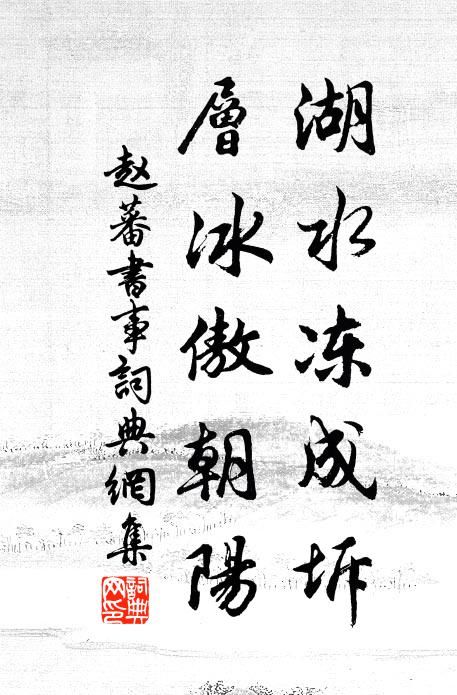 湖水冻成坼
層冰傲朝陽
赵蕃書事詞典網集
詞典网印